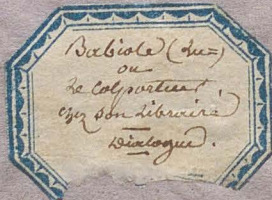 Babiole (La=)
ou
Le Colporteur
chez son Libraire
Dialogue.